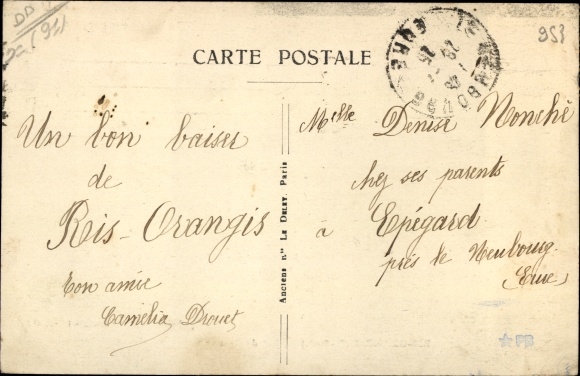 DD
(91)
953
CARTE POSTALE
LE NEUBOURG
EURE
Un bon baiser
de
Ris-Orangis
Ton amie
Camélia Drouet
Anciens Etts Le Deley, Paris
Melle Denise Nonché
chez ses parents
à Epégard
prés le Neubourg
Eure
PB